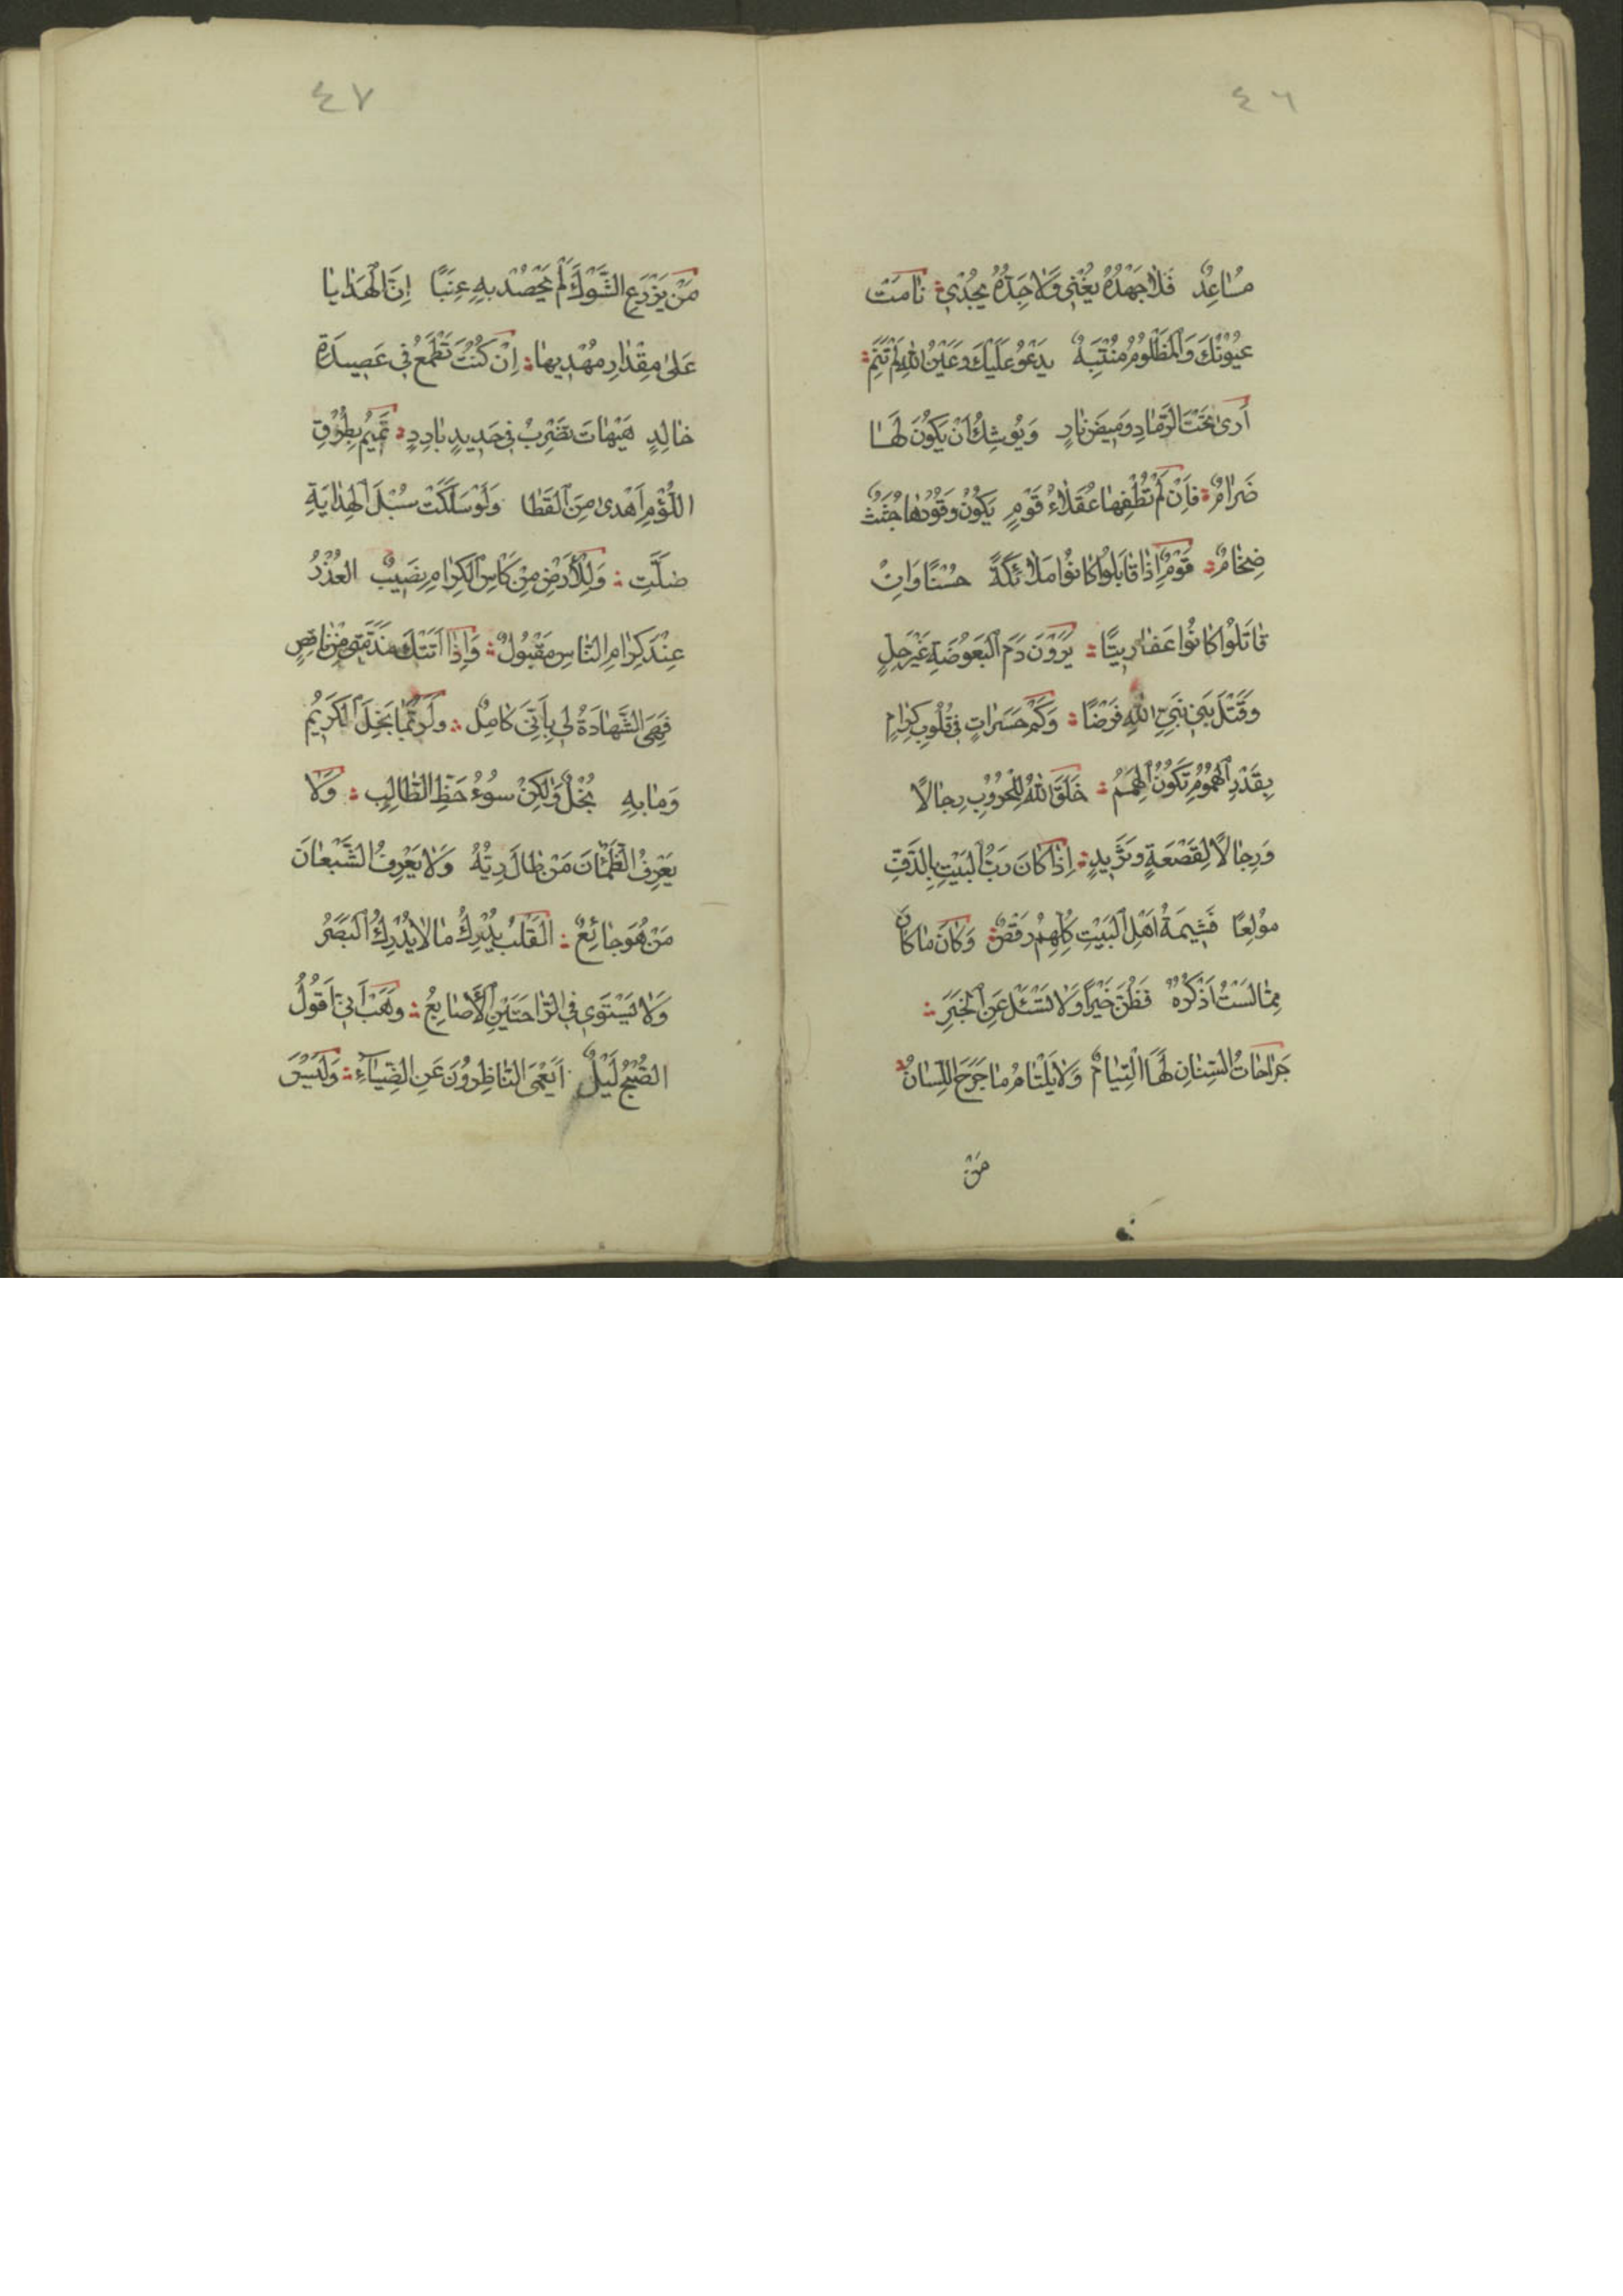 ٤٦
مُسَاعِدٌ فَلَا جَهْدُهُ يُغْنِي وَلَا جِدُّهُ يُجْدِي؞ نَامَتْ
عُيُوْنُكَ وَالْمَظْلُومُ مُنْتَبِهٌ يَدْعُو عَلَيْكَ وَعَيْنُ اللهِ لَمْ تَنَمِ؞
أَرَى تَحْتَ الرَّمَادِ وَمِيضَ نَارٍ وَيُوشِكُ اَنْ يَكُونَ لَهَا
ضَرَامٌ؞ فَاِنْ لَمْ تُطْفِهَا عُقَلَاءُ قَوْمٍ يَكُوْنُ وَقُوْدُهَا جُثَثٌ
ضِخَامٌ؞ قَوْمٌ اِذَا قَابَلُوا كَانُوا مَلَائِكَةً حُسْنًا وَاِنْ
قَاتَلُوا كَانُوا عَفَارِيتًا؞ يَرَوْنَ دَمَ الْبَعُوضَةِ غَيْرَ حِلٍّ
وَقَتْلَ بَنِي نَبِيِّ اللهِ فَرْضًا؞ وَكَمْ حَسَرَاتٍ فِي قُلُوبِ كِرَامٍ
بِقَدْرِ الْهُمُوْمِ تَكُوْنُ الْهِمَمُ؞ خَلَقَ اللهُ لِلْحُرُوْبِ رِجَالًا
وَرِجَالًا لِقَصْعَةٍ وَثَرِيدٍ؞ اِذَا كَانَ رَبُّ الْبَيْتِ بِالدَّفِّ
مُوْلِعًا فَشِيمَةُ اَهْلِ الْبَيْتِ كُلِّهِمْ رَقْصٌ؞ وَكَانَ مَا كَانَ
مِمَّا لَسْتُ اَذْكُرُهُ فَظُنَّ خَيْرًا وَلَا تَسْئَلْ عَنِ الْخَبَرِ؞
جَرَاحَاتُ السِّنَانِ لَهَا الْتِيَامٌ وَلَا يَلْتَامُ مَا جَرَحَ اللِّسَانُ؞
مَنْ
٤٧
مَنْ يَزْرَعِ الشَّوْكَ لَمْ يَحْصُدْ بِهِ عِنَبًا اِنَّ الْهَدَايَا
عَلَى مِقْدَارِ مُهْدِيهَا؞ اِنْ كُنْتَ تَطْمَعُ فِي عَصِيدَةِ
خَالِدٍ هَيْهَاتَ تَضْرِبُ فِي حَدِيدٍ بَارِدٍ؞ تَمِيمٌ بِطُرْقِ
اللُّؤْمِ اَهْدَى مِنَ الْقَطَا وَلَوْ سَلَكَتْ سُبْلَ الْهِدَايَةِ
ضَلَّتِ؞ وَلِلْأَرْضِ مِنْ كَاْسِ الْكِرَامِ نَصِيبٌ العُذْرُ
عِنْدَ كِرَامِ النَّاسِ مَقْبُولٌ؞ وَاِذَا اَتَتْكَ مَذَمَّتِي مِنْ نَاقِصٍ
فَهِيَ الشَّهَادَةُ لِي بِاَنِّي كَامِلٌ؞ وَلَرُبَّمَا بَخِلَ الْكَرِيمُ
وَمَا بِهِ بُخْلٌ وَلٰكِنْ سُوْءُ حَظِّ الطَّالِبِ؞ وَلَا
يَعْرِفُ الظَّمْآنَ مَنْ طَالَ رِيُّهُ وَلَا يَعْرِفُ الشَّبْعَانَ
مَنْ هُوَ جَائِعٌ؞ الْقَلْبُ يُدْرِكُ مَا لَا يُدْرِكُ الْبَصَرُ
وَلَا يَسْتَوِي فِي الرَّاحَتَيْنِ الْأَصَابِعُ؞ وَهَبْ اَنِّي اَقُولُ
الصُّبْحُ لَيْلٌ اَيَعْمَى النَّاظِرُوْنَ عَنِ الضِّيَاءِ؞ وَلَيْسَ